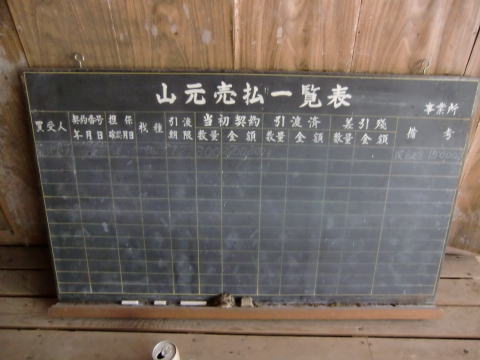 山元売払一覧表
事業所
買受人 契約番号年月日 担保確認月日 伐種 引渡期限 当初契約 数量 金額 引渡済 数量 金額 差引残 数量 金額 備考